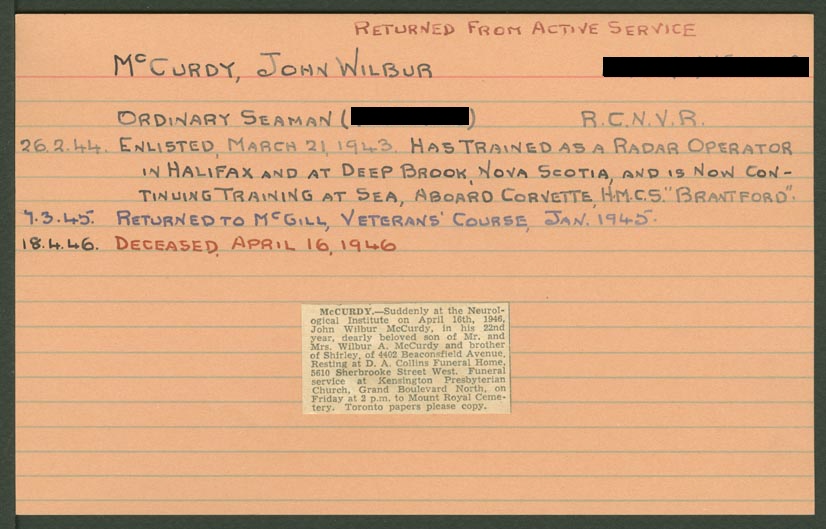 RETURNED FROM ACTIVE SERVICE
McCURDY, JOHN WILBUR
ORDINARY SEAMAN ( ) R.C.N.V.R.
26.2.44. ENLISTED, MARCH 21, 1943. HAS TRAINED AS A RADAR OPERATOR
IN HALIFAX AND AT DEEP BROOK, NOVA SCOTIA, AND IS NOW CON-
TINUING TRAINING AT SEA, ABOARD CORVETTE, H.M.C.S. "BRANTFORD".
7.3.45. RETURNED TO McGILL, VETERANS' COURSE, JAN. 1945.
18.4.46. DECEASED, APRIL 16, 1946
McCURDY.—Suddenly at the Neurol-
ogical Institute on April 16th, 1946,
John Wilbur McCurdy, in his 22nd
year, dearly beloved son of Mr. and
Mrs. Wilbur A. McCurdy and brother
of Shirley, of 4402 Beaconsfield Avenue.
Resting at D. A. Collins Funeral Home,
5610 Sherbrooke Street West. Funeral
service at Kensington Presbyterian
Church, Grand Boulevard North, on
Friday at 2 p.m. to Mount Royal Ceme-
tery. Toronto papers please copy.